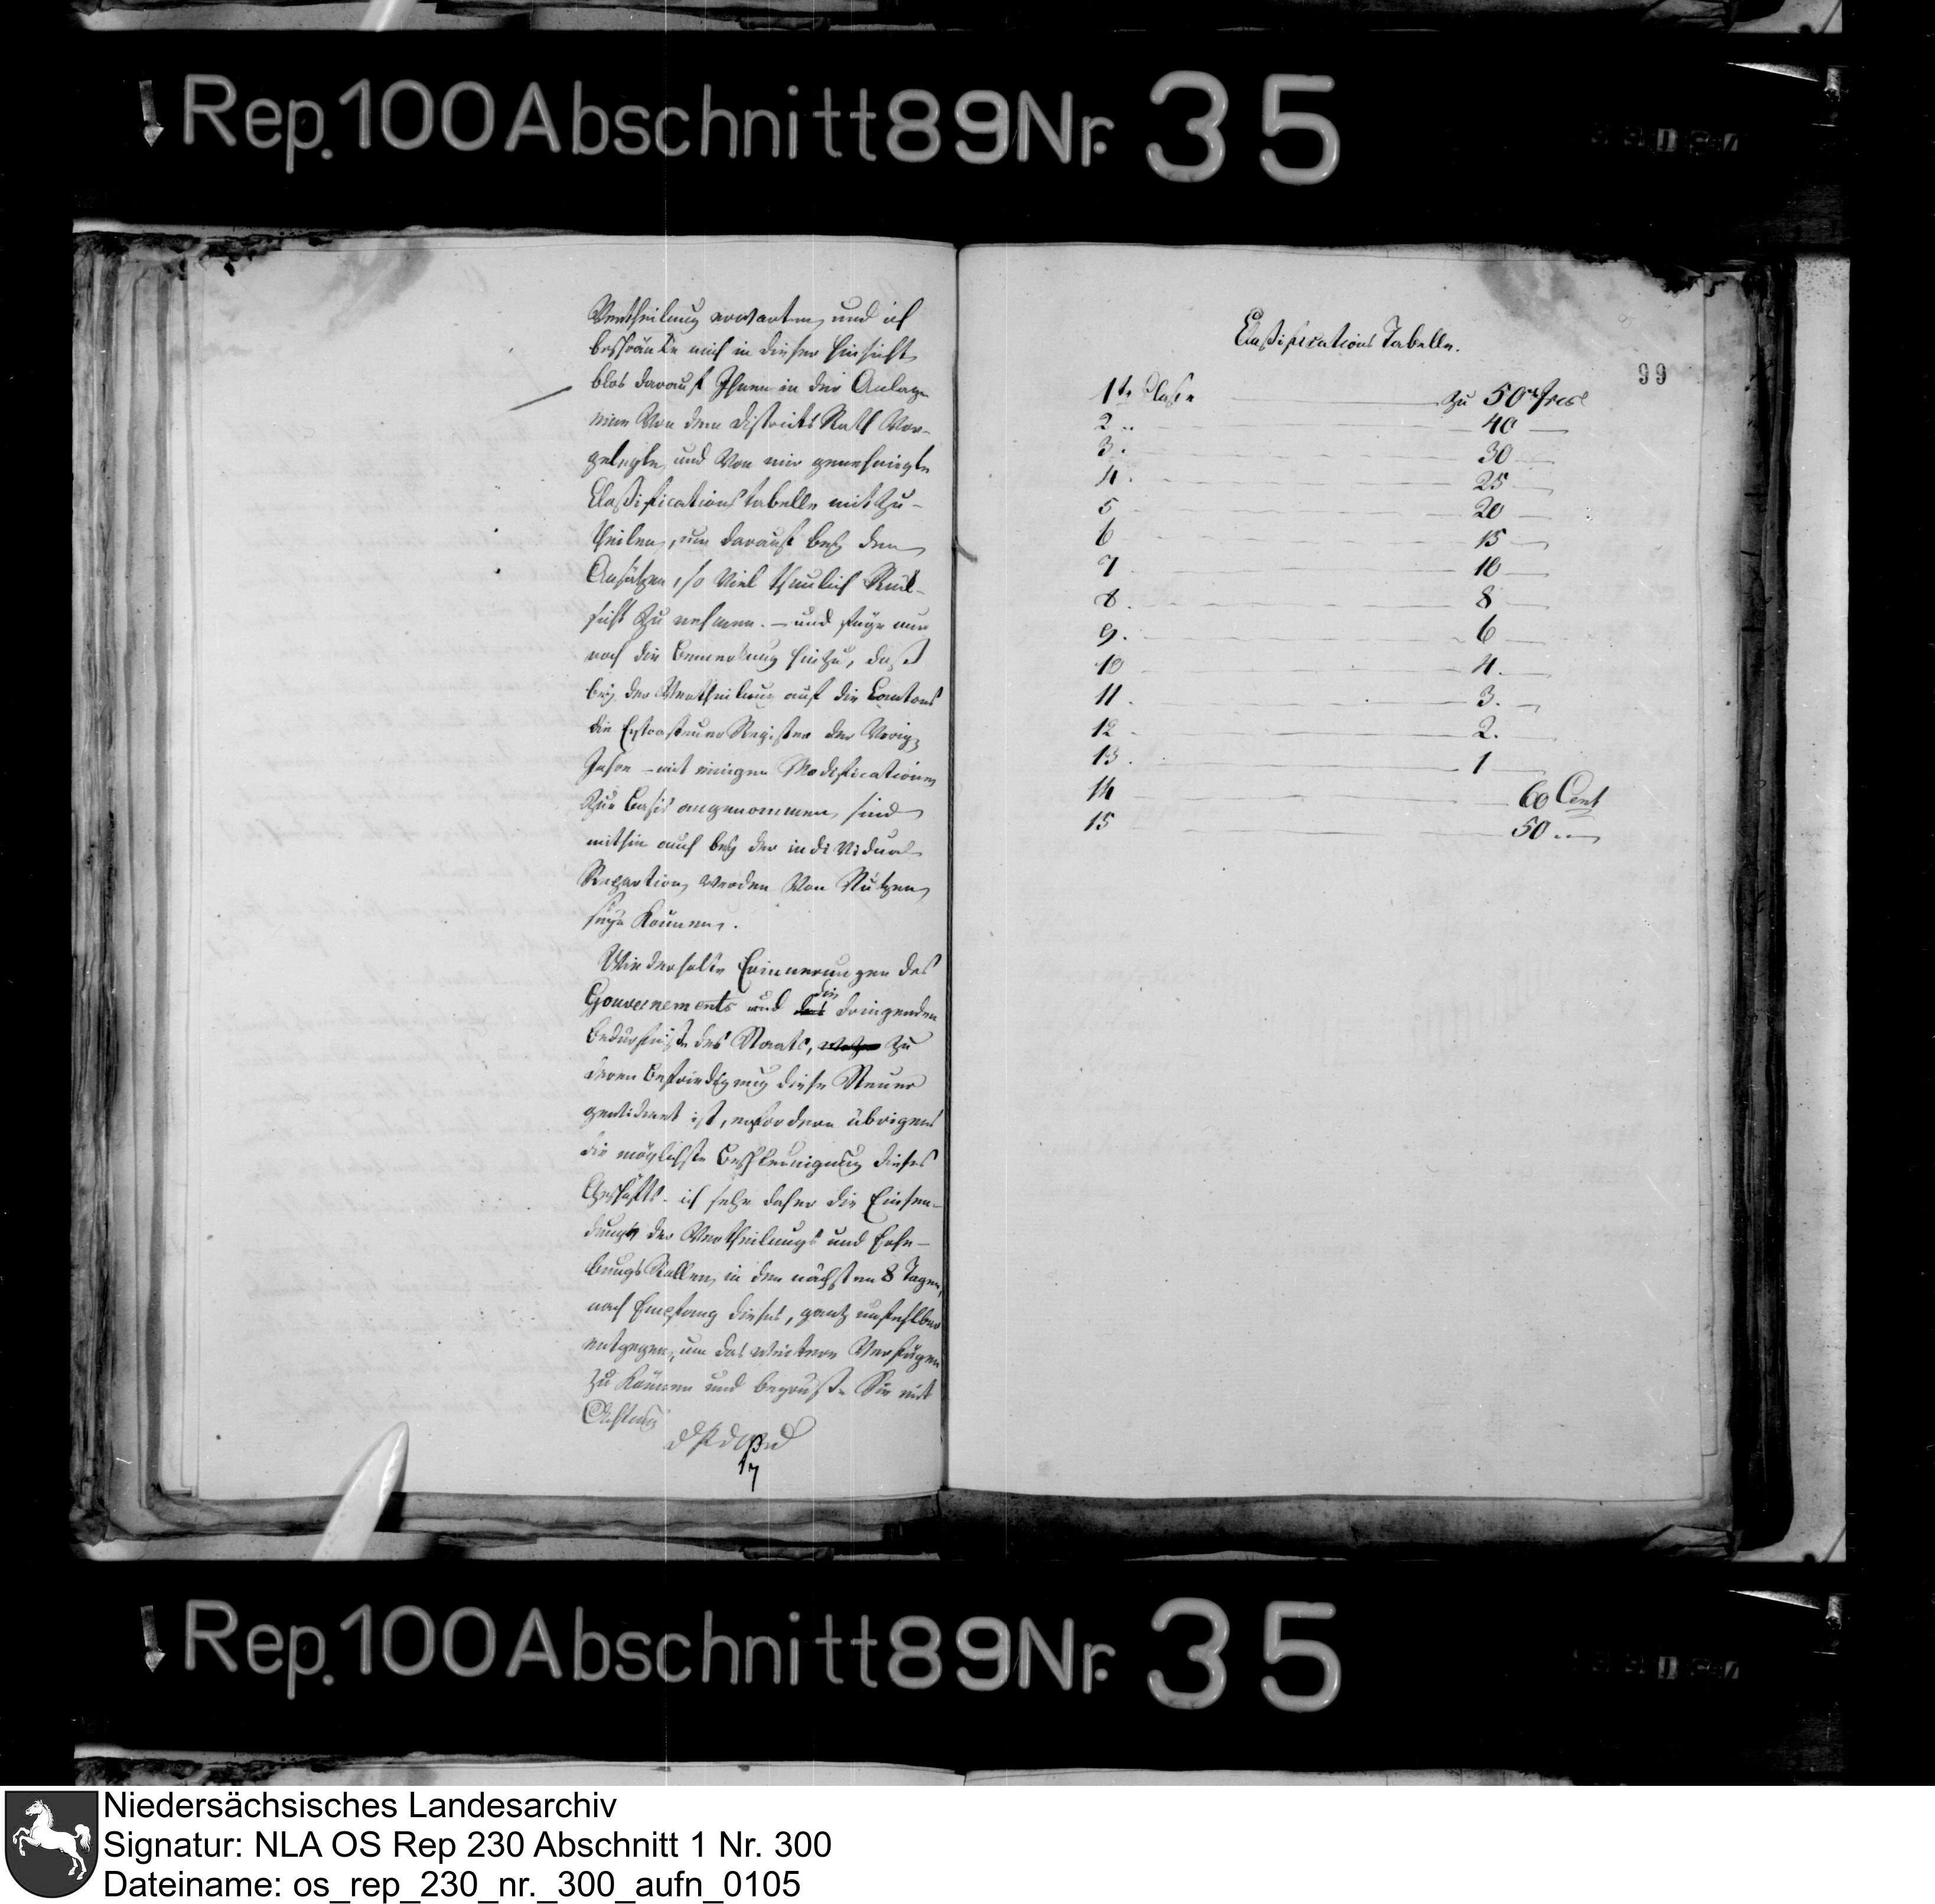 Rep. 100 Abschnitt 89 Nr. 35
Vertheilung erwarten, und ich
beschränke mich in dieser Hinsicht
blos darauf Ihnen in der Anlage
eine Von dem Districts Rath Vor-
gelegte, und Von mir genehmigte
Claßifications tabelle mitzu-
theilen, um darauf bey den
Ansätzen, so Viel thunlich Rück-
sicht zu nehmen. – und füge nur
noch die Bemerkung hinzu, daß
bey der Vertheilung auf die Cantons
die Extrasteuer Register der Vorig.
Jahre – mit einigen Modificationen
zur Basis angenommen, sind
mithin auch bey der individual
Repartion, werden Von Nutzen,
seyn können.
Wiederholte Erinnerungen des
Gouvernements und die dringenden
Bedürfniße des Staats, zu
deren Befriedigung diese Steuer
gewidmet ist, erfordern übrigens
die möglichste Beschleunigung dieses
Geschäfts. ich sehe daher die Einsen-
dung der Vertheilungs und Erhe-
bungs Rollen, in den nächsten 8 Tagen,
nach Empfang dieses, ganz unfehlbar
entgegen, um das weitere Verfügen
zu können und begrüße Sie mit
Achtung
17
Claßifications Tabelle.
99
1te Claße zu 50 francs
2 .. 40
3. 30
4. 25
5 20
6 15
7 10
8. 8
9. 6
10 4.
11. 3.
12 2.
13. 1
14 60 Cent
15 50 ..
Rep. 100 Abschnitt 89 Nr. 35
Niedersächsisches Landesarchiv
Signatur: NLA OS Rep 230 Abschnitt 1 Nr. 300
Dateiname: os_rep_230_nr._300_aufn_0105